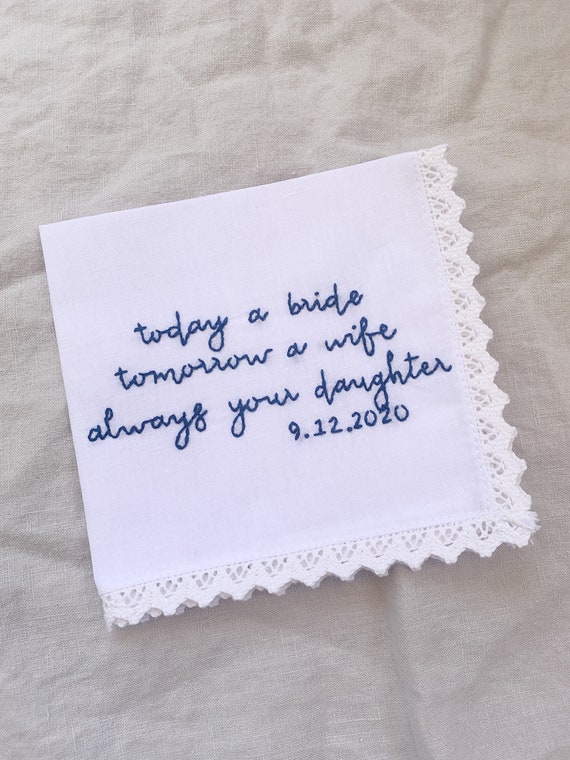 today a bride
tomorrow a wife
always your daughter
9.12.2020